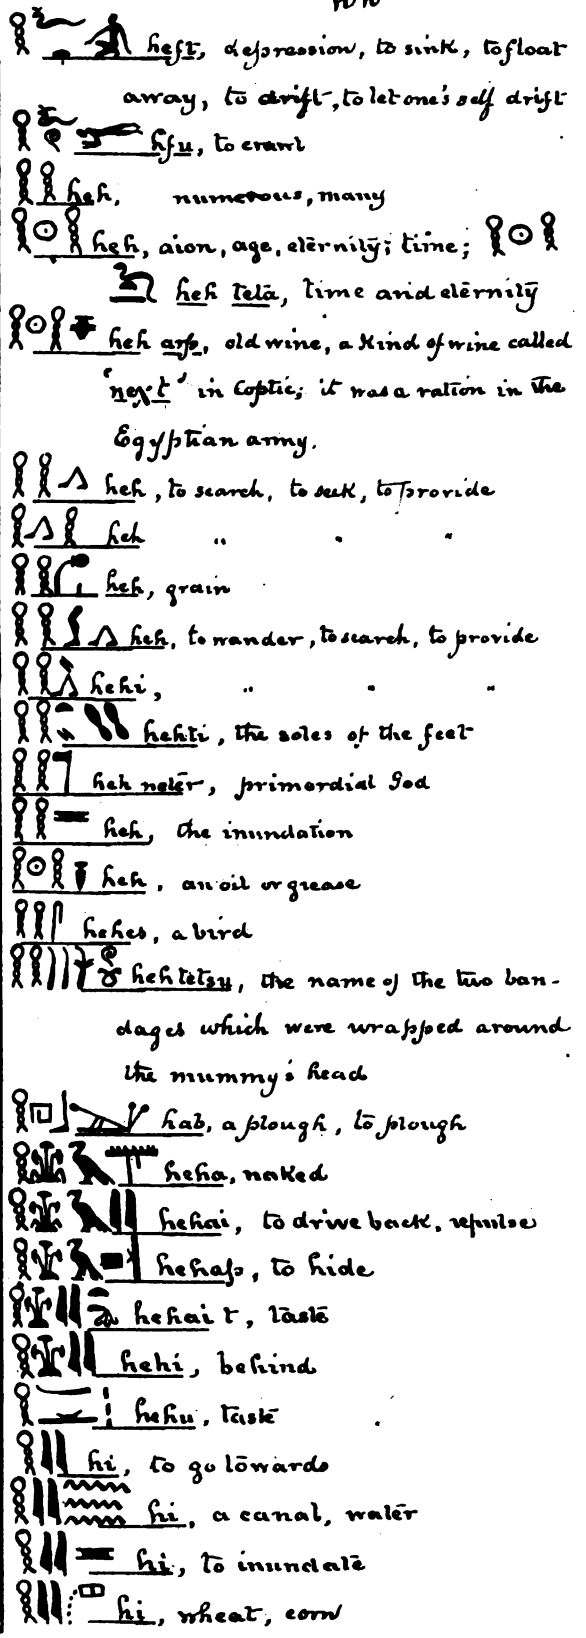 heft, depression, to sink, to float
away, to drift, to let one's self drift
hfu, to crawl
heh, numerous, many
heh, aion, age, eternity; time;
heh teta, time and eternity
heh arp, old wine, a kind of wine called
"next" in Coptic; it was a ration in the
Egyptian army.
heh, to search, to seek, to provide
heh " " "
heh, grain
heh, to wander, to search, to provide
hehi, " " "
hehti, the soles of the feet
heh neter, primordial God
heh, the inundation
heh, an oil or grease
hehes, a bird
hehtetsu, the name of the two ban-
dages which were wrapped around
the mummy's head
hab, a plough, to plough
heha, naked
hehai, to drive back, repulse
hehap, to hide
hehait, taste
hehi, behind
hehu, taste
hi, to go towards
hi, a canal, water
hi, to inundate
hi, wheat, corn